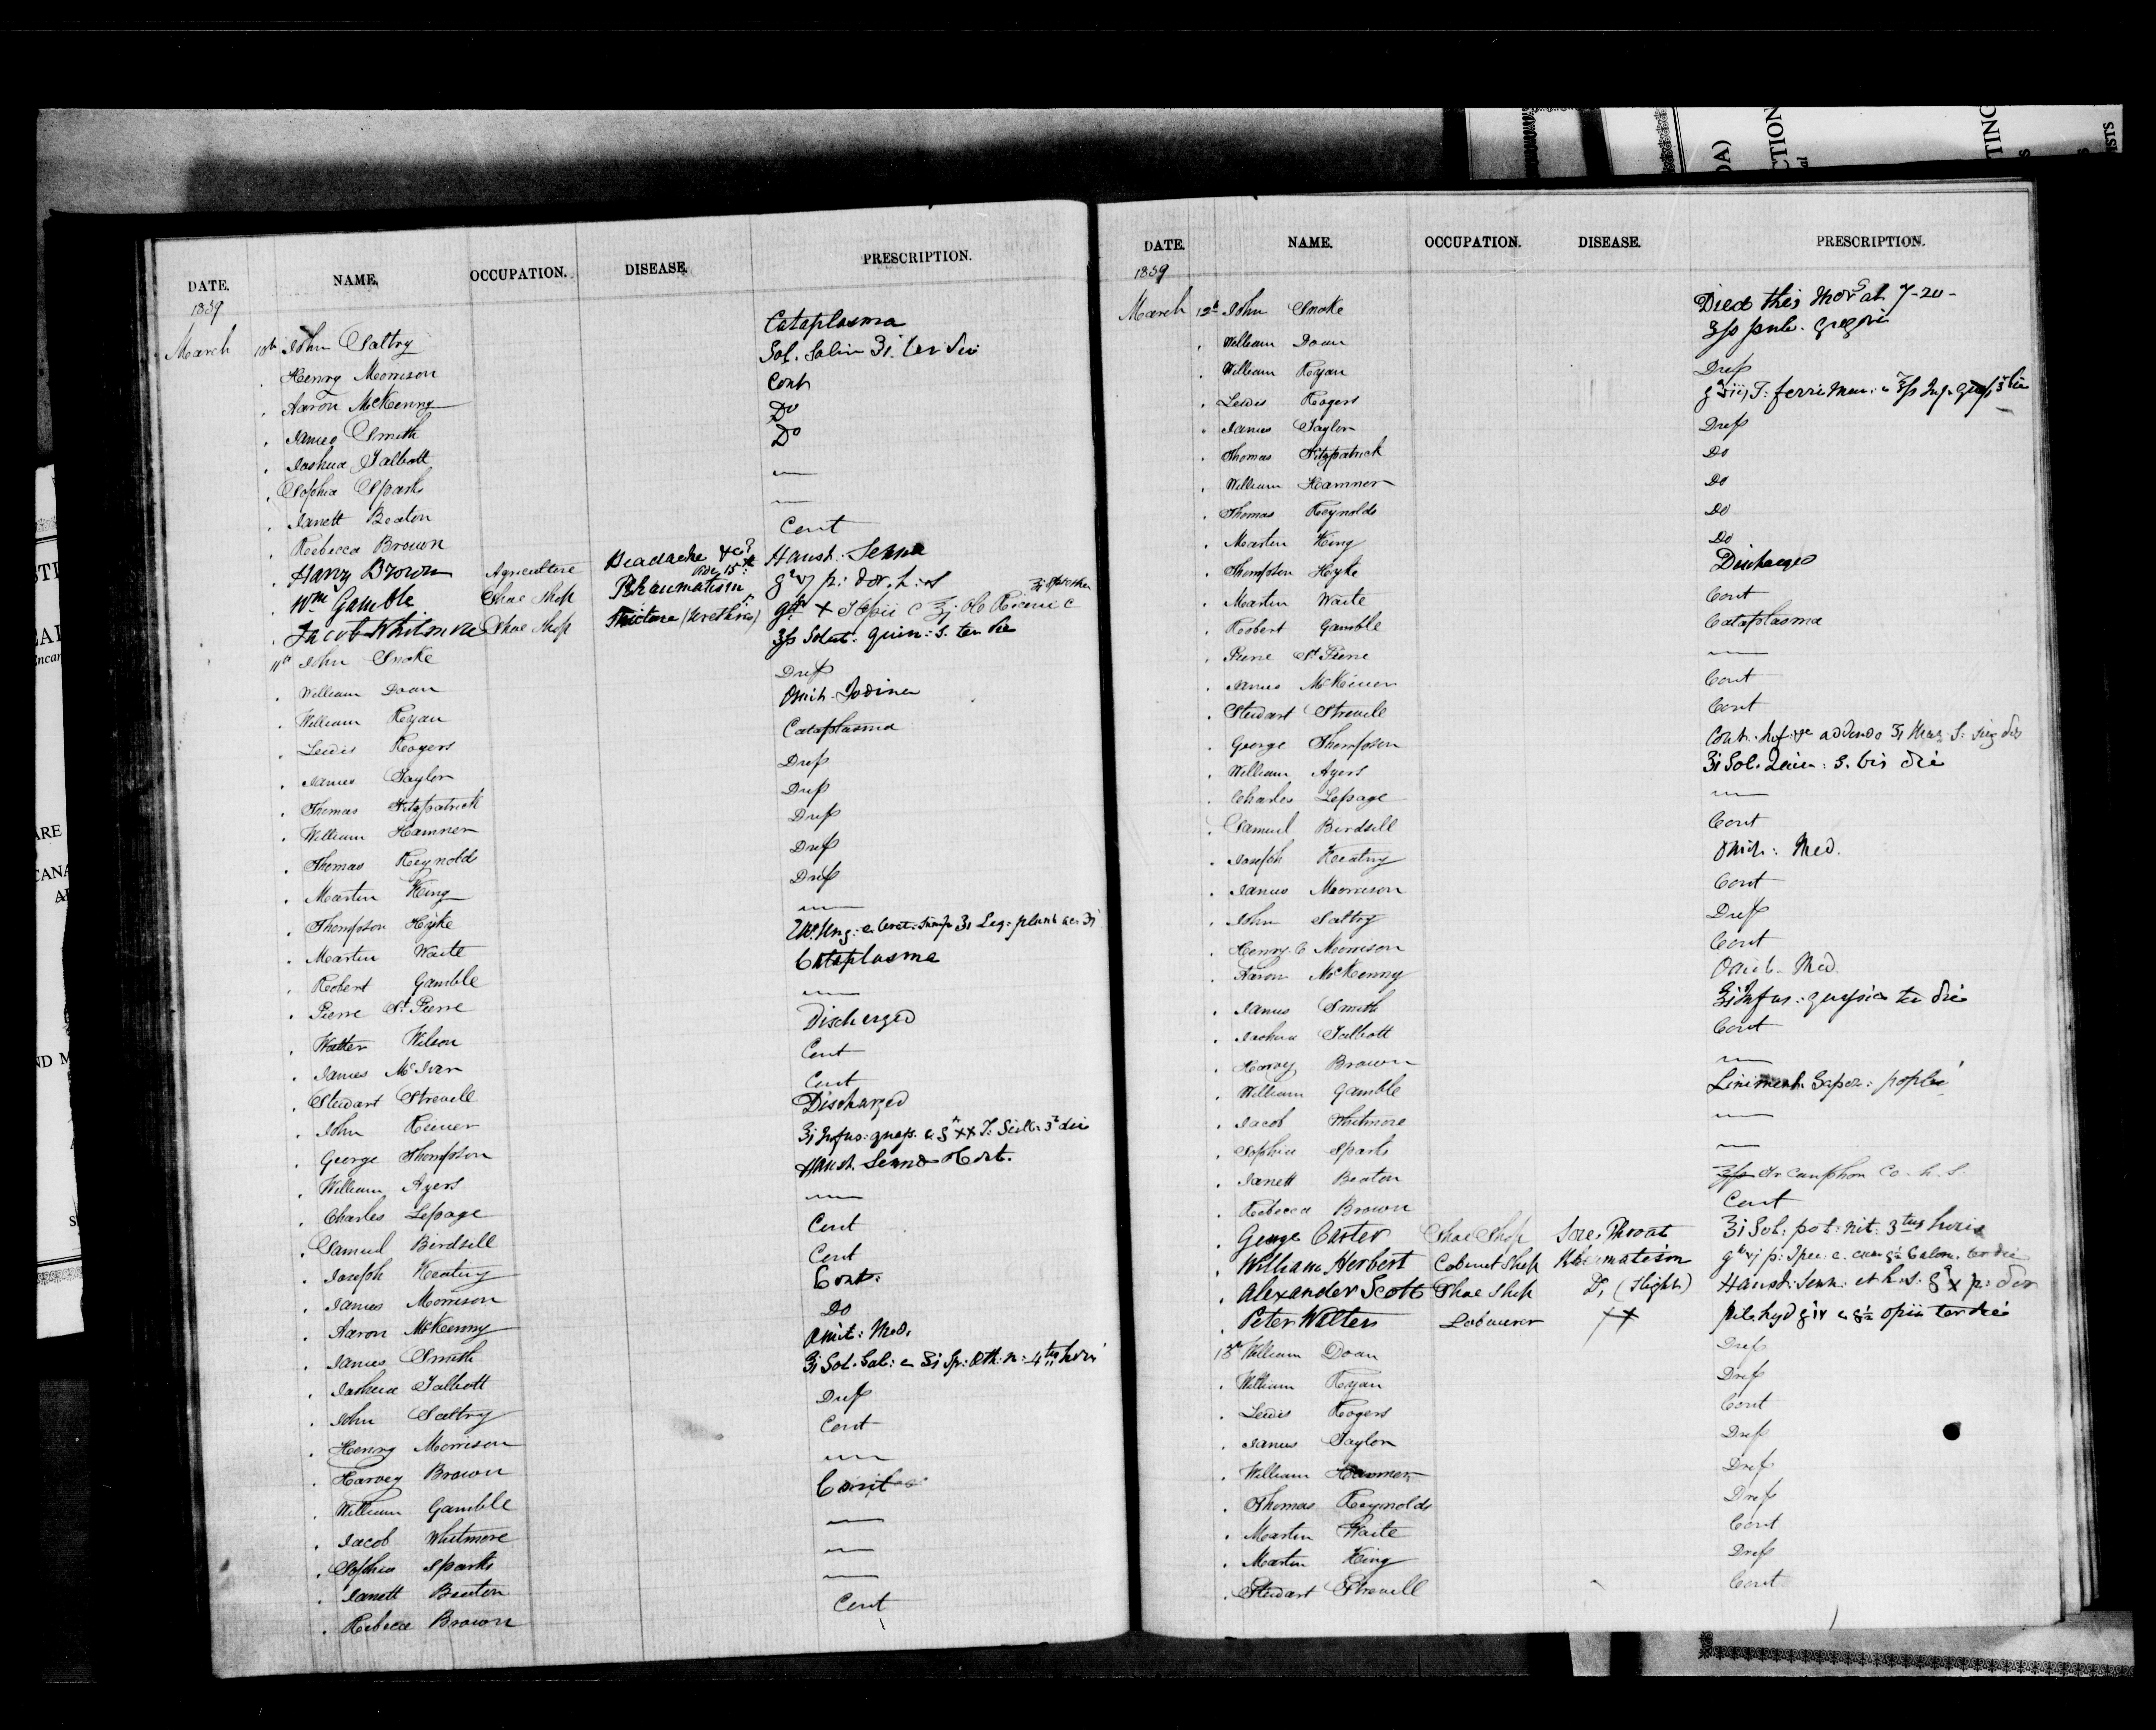 DATE. NAME. OCCUPATION. DISEASE. PRESCRIPTION.
1859
March 10th John Saltry Cataplasma
Henry Morrison Sol. Salin ʒi ter die
Aaron McKenny Cont
James Smith Do
Joshua Talbott Do
Sophia Sparks —
Janett Beaton —
Rebecca Brown Cont
Harvy Brown Agriculture Headache &c? Haust. Senna
Wm Gamble Shoe Shop Rheumatism p: dov. h. s
Jacob Whitmore Shoe Shop Stricture (Urethra)
11th John Snoke Solut: Quin: S. ter die
William Doan Drep
William Ryan Omit. Iodine
Lewis Rogers Cataplasma
James Taylor Drep
Thomas Fitzpatrick Drep
William Hamner Drep
Thomas Reynolds Drep
Martin King Drep
Thompson Hyke —
Martin Waite
Robert Gamble Cataplasma
Pierre St Pierre —
Walter Wilson Discharged
James McIver Cont
Stewart Strevell Cont
John Reiner Discharged
George Thompson
William Ayers Haust. Senna
Charles Lepage —
Samuel Birdsell Cont
Joseph Keatny Cont
James Morrison Cont:
Aaron McKenny Do
James Smith Omit: Med.
Joshua Talbott
John Saltry Drep
Henry Morrison Cont
Harvey Brown —
William Gamble
Jacob Whitmore —
Sophia Sparks —
Janett Beaton —
Rebecca Brown Cont
DATE. NAME. OCCUPATION. DISEASE. PRESCRIPTION.
1859
March 12th John Snoke Died this Mors at 7-20-
William Doan
William Ryan Drep
Lewis Rogers
James Taylor Drep
Thomas Fitzpatrick Do
William Hamner Do
Thomas Reynolds Do
Martin King Do
Thompson Hyke Discharged
Martin Waite Cont
Robert Gamble Cataplasma
Pierre St Pierre —
James McKiver Cont
Stewart Strevell Cont
George Thompson
William Ayers ʒi Sol. Quin: S. bis die
Charles Lepage —
Samuel Birdsell Cont
Joseph Keatny Omit: Med.
James Morrison Cont
John Saltry Drep
Henry C Morrison Cont
Aaron McKenny Omit. Med.
James Smith Infus: quassia ter die
Joshua Talbott Cont
Harvey Brown —
William Gamble Liniment. Sapon:
Jacob Whitmore —
Sophia Sparks —
Janett Beaton Camphor Co. h. s.
Rebecca Brown Cont
George Carter Shoe Shop Sore Throat ʒi Sol: pot: nit: 3tiis horis
William Herbert Cabinet Shop Rheumatism
Alexander Scott Shoe Shop Do (Slight)
Peter Walters Labourer XX opii ter die
13th William Doan Drep
William Ryan Drep
Lewis Rogers Cont
James Taylor Drep
William Hamner Drep
Thomas Reynolds Drep
Martin Waite Cont
Martin King Drep
Stewart Strevell Cont